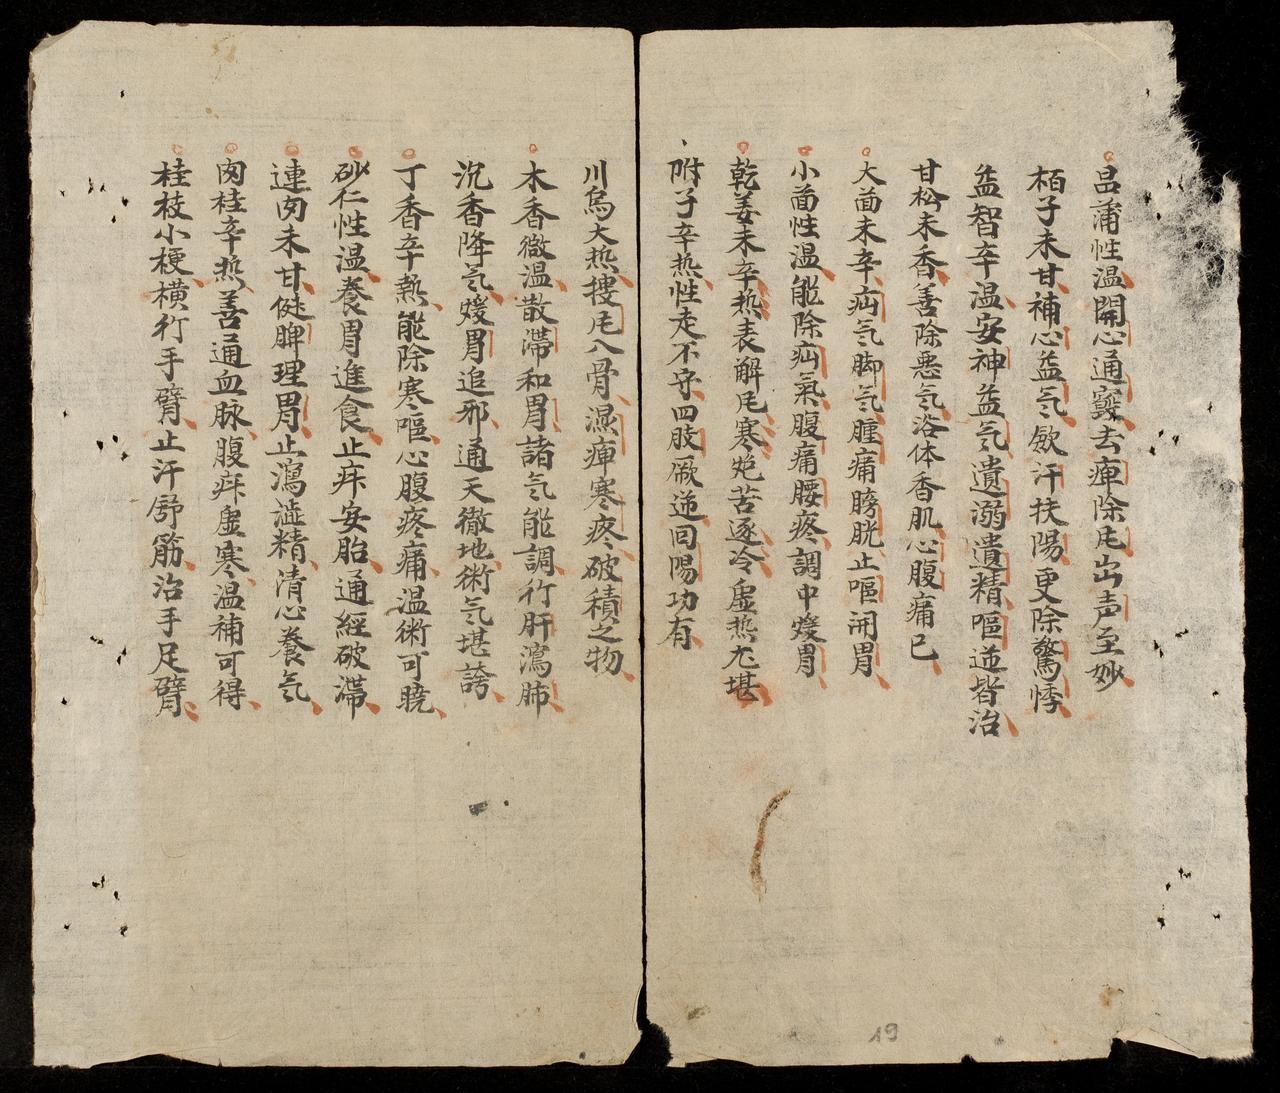 昌蒲性温開心通竅去痺除㞋出声至妙
栢子未甘補心益气歛汗扶陽更除驚悸
益智辛温安神益气遺溺遺精嘔逆皆治
甘松未香善除悪气浴体香肌心腹痛已
大茴未辛疝气脚气腫痛膀胱止嘔開胃
小茴性温能除疝氣腹痛腰疼調中煖胃
乾姜未辛热表解㞋寒炮苦逐冷虚热尤堪
附子辛热性走不守四肢厥逆回陽功有
川烏大热搜㞋入骨濕痺寒疼破積之物
木香微温散滯和胃諸气能調行肝瀉肺
沉香降气煖胃追邪通天徹地術气堪誇
丁香辛熱能除寒嘔心腹疼痛温術可曉
砂仁性温養胃進食止痛安胎通經破滯
連肉未甘健脾理胃止瀉澁精清心養气
肉桂辛热善通血脉腹痛虚寒温補可得
桂枝小梗横行手臂止汗舒筋治手足臂
19